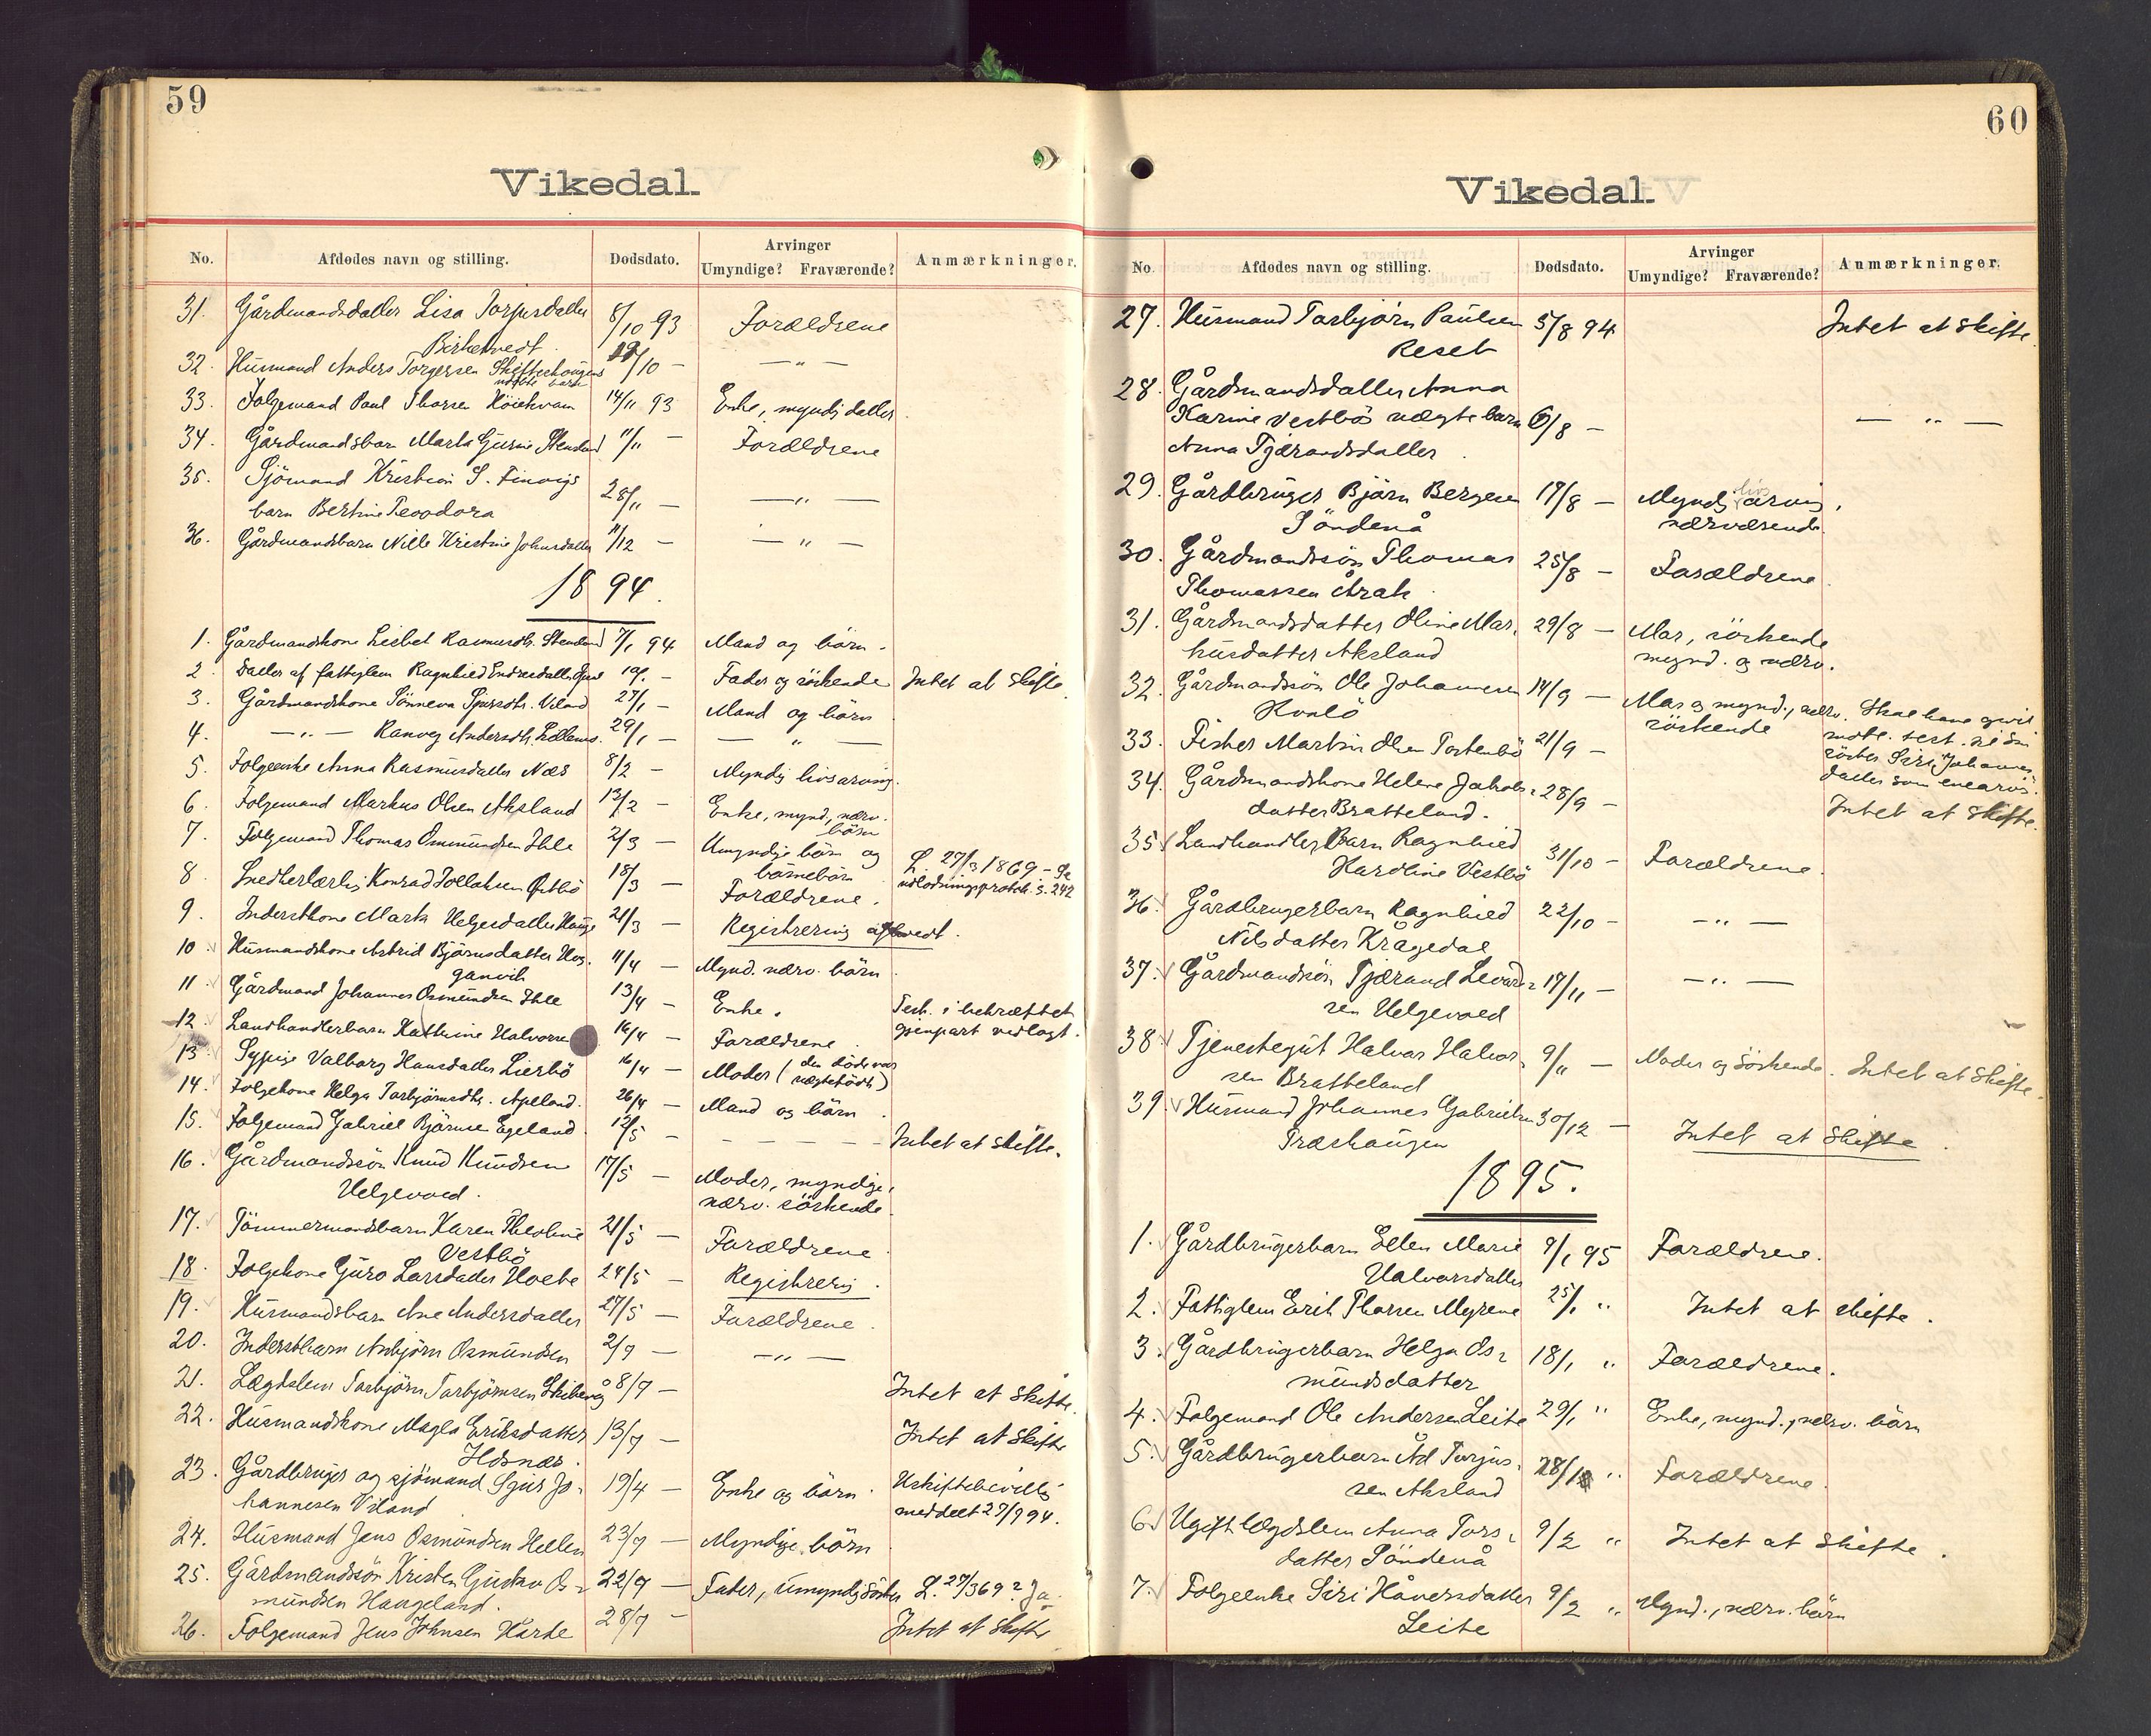 59
Vikedal.
No. Afdødes navn og stilling. Dødsdato. Arvinger Umyndige? Fraværende? Anmærkninger.
31. Gårdmandsdatter Lisa Torjusdatter 8/10 93 Forældrene
Birketvedt.
32. Husmand Anders Torgersen /10 — — „ —
uægte barn
33. Folgemand Paul Thorsen 14/11 93 Enke, myndig datter
34. Gårdmandsbarn Marta Gurine Stensland 11/11 — Forældrene
35. Sjömand Kristian S. Finvigs
barn Bertine Teodora 28/11 — — „ —
36. Gårdmandsbarn Nille Kristine Johnsdatter 11/12 — — „ —
1894.
1. Gårdmandskone Lisbet Rasmusdtr. Stensland 7/1 94 Mand og börn.
2. Datter af fattiglem Ragnhild Endresdatter 19/1 — Fader og söskende Intet at skifte.
3. Gårdmandskone Sönneva Sjursdtr. Viland 27/1 — Mand og börn
4. — „ — Ranveg Andersdtr. 29/1 — — „ —
5. Folgeenke Anna Rasmusdatter Næs 8/2 — Myndig livsarving.
6. Folgemand Markus Olsen Aksland 13/2 — Enke, mynd., nærv.
börn
7. Folgemand Thomas Osmundsen Ihle 2/3 — Umyndige börn og
börnebörn L. 27/3 1869 – Se
udlodningsprotok. s. 242
8. Snedkerlærling Konrad Tollaksen 18/3 — Forældrene.
9. Inderstkone Marta Helgesdatter Hauge 21/3 — Registrering
10. Husmandskone Astrid Björnsdatter Hog-
ganvik 11/4 — Mynd. nærv. börn
11. Gårdmand Johannes Osmundsen Ihle 13/4 — Enke. Test. i bekræftet
gjenpart vedlagt.
12. Landhandlerbarn Kathrine Halvorsen 16/4 — Forældrene.
13. Sypige Valborg Hansdatter Lierbö 16/4 — Moder (den döde var
uægtefödt)
14. Folgekone Helga Torbjörnsdtr. Apeland. 26/4 — Mand og börn.
15. Folgemand Gabriel Björnsen Egeland 12/5 — — — — Intet at skifte.
16. Gårdmandssön Knud Knudsen
Helgevold. 17/5 — Moder, myndige,
nærv. söskende.
17. Tömmermandsbarn Karen Theoline
Vestbö 21/5 — Forældrene
18. Folgekone Guro Larsdatter 24/5 — Registrering.
19. Husmandsbarn Ane Andersdatter 27/5 — Forældrene.
20. Inderstbarn Asbjörn Osmundsen 2/7 — — „ —
21. Lægdslem Torbjörn Torbjörnsen 8/7 — Intet at skifte.
22. Husmandskone Magla Eriksdatter
Hösnæs. 13/7 — Intet at skifte
23. Gårdbruger og sjömand Sjur Jo-
hannesen Viland 19/4 — Enke og börn. Uskiftebevilling
meddelt 27/7 94.
24. Husmand Jens Osmundsen Hellen 23/7 — Myndige börn
25. Gårdmandssön Kristen Gustav Os-
mundsen Haugeland. 22/7 — Fader, umyndig söster L. 27/3 69? Ja
26. Folgemand Jens Johnsen 28/7 — Intet at skifte
60
Vikedal.
No. Afdødes navn og stilling. Dødsdato. Arvinger Umyndige? Fraværende? Anmærkninger.
27. Husmand Torbjörn Paulsen
Reset 5/8 94 Intet at skifte.
28. Gårdmandsdatter Anna
Karine Vestbös uægte barn 6/8 — — „ —
Anna Tjærandsdatter.
29. Gårdbruger Björn Bergesen
Söndenå 19/8 — Myndig livsarving,
nærværende.
30. Gårdmandssön Thomas
Thomassen 25/8 — Forældrene.
31. Gårdmandsdatter Oline Mar-
kusdatter Aksland 29/8 — Mor, söskende
mynd. og nærv.
32. Gårdmandssön Ole Johannesen
14/9 — Mor og mynd., nærv.
söskende Skal have oprettet
test. til sin
söster Siri Johannes-
datter som enearving.
33. Fisker Martin Olsen 21/9 —
34. Gårdmandskone Helene Jakobs-
datter Bratteland. 28/9 — Intet at skifte.
35. Landhandlerbarn Ragnhild
Karoline Vestbö 31/10 — Forældrene.
36. Gårdbrugerbarn Ragnhild
Nilsdatter Krågedal 22/10 — — „ —
37. Gårdmandssön Tjærand Sevard-
sen Helgevold 17/11 — — „ —
38. Tjenestegut Halvor Halvor-
sen Bratteland 9/11 — Moder og söskende. Intet at skifte.
39. Husmand Johannes Gabrielsen
Træskaugen 30/12 — Intet at skifte.
1895.
1. Gårdbrugerbarn Ellen Marie
Halvorsdatter 9/1 95 Forældrene.
2. Fattiglem Erik Thorsen Myrene 25/1 „ Intet at skifte.
3. Gårdbrugerbarn Helga Os-
mundsdatter 18/1 „ Forældrene.
4. Folgemand Ole Andersen Leite 29/1 „ Enke, mynd., nærv. börn
5. Gårdbrugerbarn Ad Torjus-
sen Aksland 28/1 „ Forældrene.
6. Ugift lægdslem Anna Tors-
datter Söndenå 9/2 „ Intet at skifte.
7. Folgeenke Siri Håversdatter
Leite 9/2 „ Mynd., nærv. börn